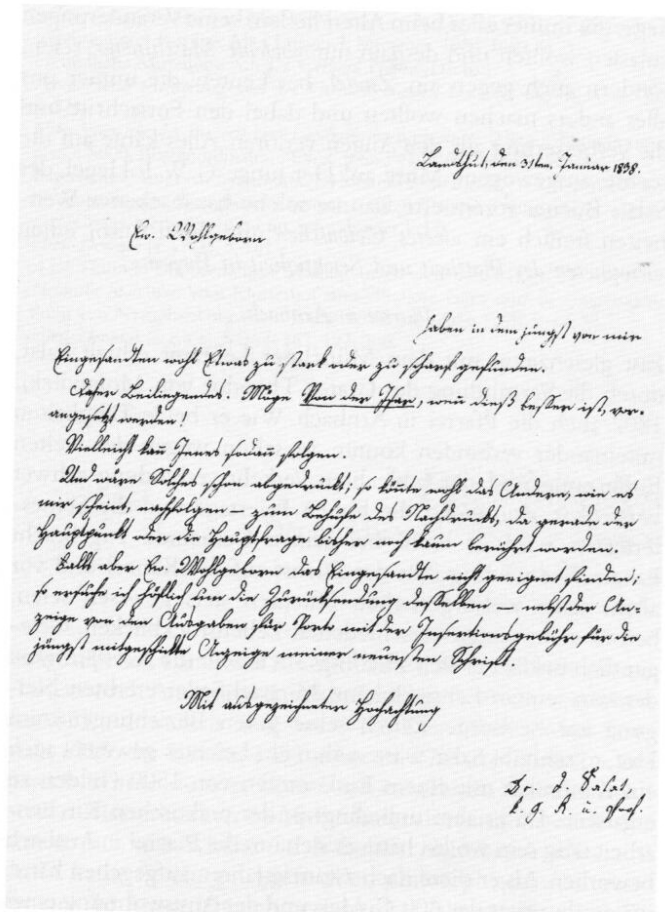 Landshut, den 31ten Januar 1838.
Ew. Wohlgeborn
haben in dem jüngst von mir
Eingesandten wohl Etwas zu stark oder zu scharf gefunden.
Daher Beiliegendes. Möge Von der das besser ist, vor-
angesetzt werden!
Vielleicht kann Jenes sodann folgen.
Und wäre Solches schon abgedruckt; so könnte wohl das Andere, wie es
mir scheint, nachfolgen – zum Behufe des Nachdrucks, da gerade der
Hauptpunkt oder die Hauptfrage bisher noch kaum berührt worden.
Falls aber Ew. Wohlgeborn das Eingesandte nicht geeignet finden;
so ersuche ich höflich um die Zurücksendung desselben – nebst der An-
zeige von den Ausgaben für Porto mit der Insertionsgebühr für die
jüngst mitgeschickte Anzeige meiner neuesten Schrift.
Mit ausgezeichneter Hochachtung
Dr. J. Salat,
k. g. R. u. Prof.